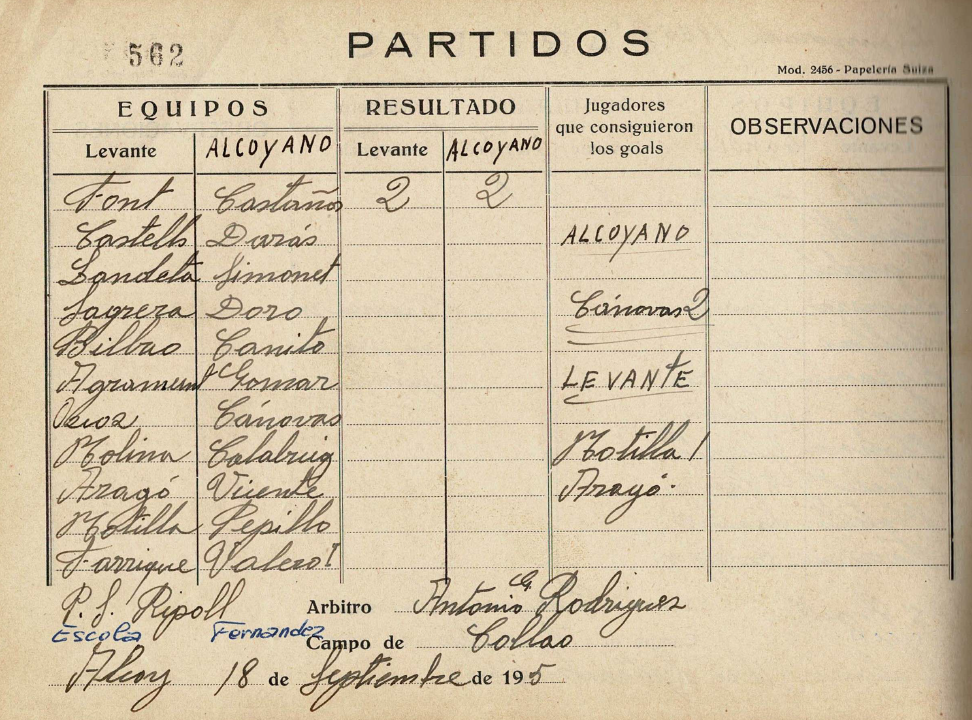 562 PARTIDOS
Mod. 2456 - Papelería Suiza
EQUIPOS RESULTADO Jugadores que consiguieron los goals OBSERVACIONES
Levante ALCOYANO Levante ALCOYANO
Font Castaños 2 2
Castells Darás ALCOYANO
Landeta Simonet
Sagrera Doro Cánovas 2
Bilbao Canito
Agramunt Gomar LEVANTE
Cánovas
Molina Calabuig Motilla 1
Aragó Vicente Aragó.
Motilla Pepillo
Farrique Valero I
P. S. Ripoll Arbitro Antonio G Rodriguez
Escola Fernandez Campo de Collao
Alcoy 18 de Septiembre de 195